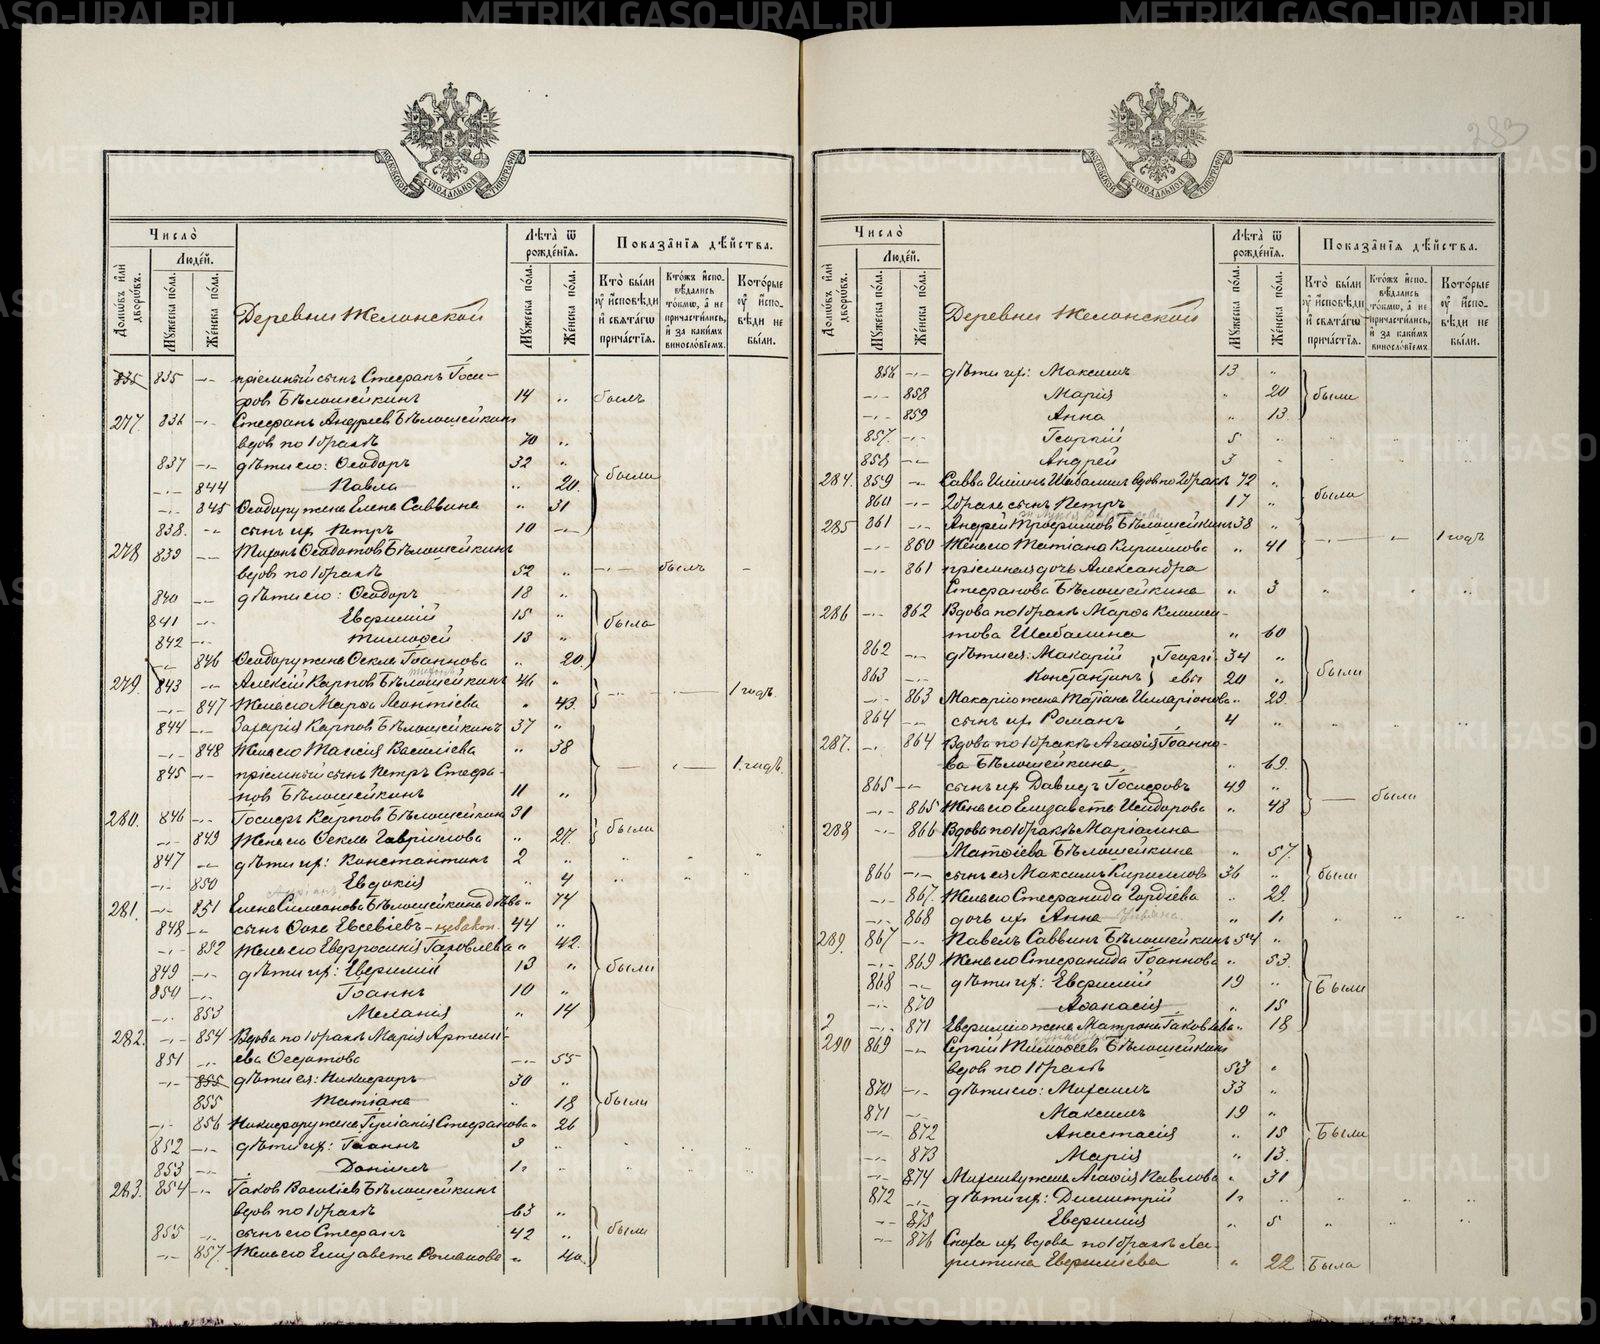 METRIKI.GASO-URAL.RU
283
МОСКОВСКОЙ СѴНОДАЛЬНОЙ ТИПОГРАФІИ
Число̀
Людей.
Домѡвъ и҆лѝ дворѡвъ.
Мꙋжеска по́ла.
Же́нска по́ла.
Деревни Желонской
Лѣ́та ѿ рожде́нїѧ.
Мꙋжеска по́ла.
Же́нска по́ла.
Показа̑нїѧ дѣ́йства.
Кто̀ бы́ли ᲂу҆ и҆сповѣди и҆ свѧта́гѡ прича́стїѧ.
Кто́жъ и҆спо-вѣдались то́кмѡ, а҆ не причасти́лись, и҆ за каки́мъ винослові́емъ.
Кото́рые ᲂу҆ и҆спо-вѣди не бы́ли.
835 835 -„- пріемный сынъ Стефанъ Іоси-
фовъ Бѣлошейкинъ 14 „ былъ
277 836 -„- Стефанъ Андреевъ Бѣлошейкинъ
вдов по 1 бракѣ 70 „
837 -„- дѣти его: Ѳеодоръ 32 „
-„- 844 Павла „ 20 были
-„- 845 Ѳеодору жена Елена Саввина „ 31
838 -„- сынъ их Петръ 10 -„-
278 839 -„- Тихонъ Ѳеодотовъ Бѣлошейкинъ
вдов по 1 бракѣ 52 „ -„- былъ -
840 -„- дѣти его: Ѳеодоръ 18 „
841 -„- Евфимій 15 „ были
842 -„- Тимофей 13 „
-„- 846 Ѳеодору жена Ѳекла Іоаннова „ 20
279 843 -„- Алексій Карповъ Бѣлошейкинъ 46 „
-„- 847 Жена его Марфа Леонтіева „ 43 -„- -„- 1 годъ
844 -„- Захарія Карповъ Бѣлошейкинъ 37 „
-„- 848 Жена его Таисія Василіева „ 38
845 -„- пріемный сынъ Петръ Стефа- -„- 1 годъ
новъ Бѣлошейкинъ 11 „
280 846 -„- Іосифъ Карповъ Бѣлошейкинъ 31
-„- 849 Жена его Ѳекла Гавріилова „ 27 были
847 -„- дѣти их: Константинъ 2 „ „ „ „
-„- 850 Евдокія „ 4 „ „ „
281 -„- 851 Елена Симеонова Бѣлошейкина дѣва „ 74
848 -„- сынъ Ѳока Евсевіевъ - незакон. 44 „
-„- 852 Жена его Евфросинія Іаковлева „ 42
849 -„- дѣти их: Евфимій 13 „ были
850 -„- Іоаннъ 10 „
-„- 853 Меланія „ 14
282 -„- 854 Вдова по 1 бракѣ Марія Артемі-
851 -„- ева -„- 55
-„- 855 дѣти ея: Никифоръ 30 „
855 Татіана „ 18 были
-„- 856 Никифору жена Іуліанія Стефанова „ 26
852 -„- дѣти их: Іоаннъ 3 „
853 -„- Даніилъ 1г „
283 854 -„- Іаков Василіев Бѣлошейкинъ
вдов по 1 бракѣ 63 „
855 -„- сынъ его Стефанъ 42 „ были
-„- 857 Жена его Елизавета Романова „ 40
Число̀
Людей.
Домѡвъ и҆лѝ дворѡвъ.
Мꙋжеска по́ла.
Же́нска по́ла.
Деревни Желонской
Лѣ́та ѿ рожде́нїѧ.
Мꙋжеска по́ла.
Же́нска по́ла.
Показа̑нїѧ дѣ́йства.
Кто̀ бы́ли ᲂу҆ и҆сповѣди и҆ свѧта́гѡ прича́стїѧ.
Кто́жъ и҆спо-вѣдались то́кмѡ, а҆ не причасти́лись, и҆ за каки́мъ винослові́емъ.
Кото́рые ᲂу҆ и҆спо-вѣди не бы́ли.
856 -„- дѣти их: Максимъ 13 „
-„- 858 Марія „ 20 были
-„- 859 Анна „ 13
857 -„- Георгій 5 „
858 -„- Андрей 3 „
284 859 -„- Савва Шабалинъ вдов по 2 бракѣ 72 „
860 -„- 2 брака сынъ Петръ 17 „ были
285 861 -„- Андрей Трофимов Бѣлошейкинъ 38 „
-„- 860 Жена его Татіана Кириллова „ 41 -„- -„- 1 годъ
-„- 861 пріемная дочь Александра
Стефанова Бѣлошейкина „ 3 „ „ „
286 -„- 862 Вдова по 1 бракѣ Марфа Климен-
това Шабалина „ 60
862 -„- дѣти ея: Макарій } Георгі- 34 „
863 -„- Константинъ } евы 20 „ были
-„- 863 Макарію жена Татіана Илларіонова „ 29
864 -„- сынъ их Романъ 4 „
287 -„- 864 Вдова по 1 бракѣ Агафія Іоанно-
ва Бѣлошейкина „ 69
865 -„- сынъ их Давидъ Іосифовъ 49 „ были
-„- 865 Жена его Елизавета Исидорова „ 48
288 -„- 866 Вдова по 1 бракѣ Маріамна
Матфіева Бѣлошейкина „ 57
866 -„- сынъ ея Максимъ Кирилловъ 36 „ были
-„- 867 Жена его Стефанида Гордіева „ 29
-„- 868 дочь их Анна „ 1г
289 867 -„- Павелъ Саввинъ Бѣлошейкинъ 54 „
-„- 869 Жена его Стефанида Іоаннова „ 53
868 -„- дѣти их: Евфимій 19 „ Были
-„- 870 Аѳанасія „ 15
2 -„- 871 Евфимію жена Матрона Іаковлева „ 18
290 869 -„- Сергій Тимофеевъ Бѣлошейкинъ
вдов по 1 бракѣ 53 „
870 -„- дѣти его: Михаилъ 33 „
871 -„- Максимъ 19 „
-„- 872 Анастасія „ 15 Были
-„- 873 Марія „ 13
-„- 874 Михаилу жена Агафія Павлова „ 31
872 -„- дѣти их: Димитрій 1г „
-„- 875 Евфимія „ 5 „
-„- 876 Сноха их вдова по 1 бракѣ Ха-
ритина Евфиміева „ 22 Была